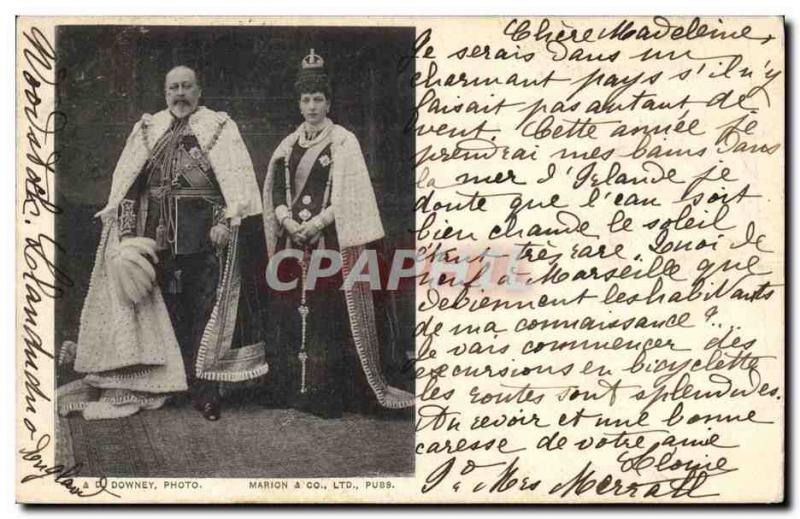 Chère Madeleine,
Je serais dans un
charmant pays s'il n'y
faisait pas autant de
vent. Cette année je
prendrai mes bains dans
la mer d'Irlande je
doute que l'eau soit
bien chaude le soleil
étant très rare. Quoi de
neuf à Marseille que
deviennent les habitants
de ma connaissance?..
Je vais commencer des
excursions en bicyclette
les routes sont splendides.
Au revoir et une bonne
caresse de votre amie
Pd Mrs
Llandudno
& D. DOWNEY, PHOTO. MARION & CO., LTD., PUBS.
CPAPHIL